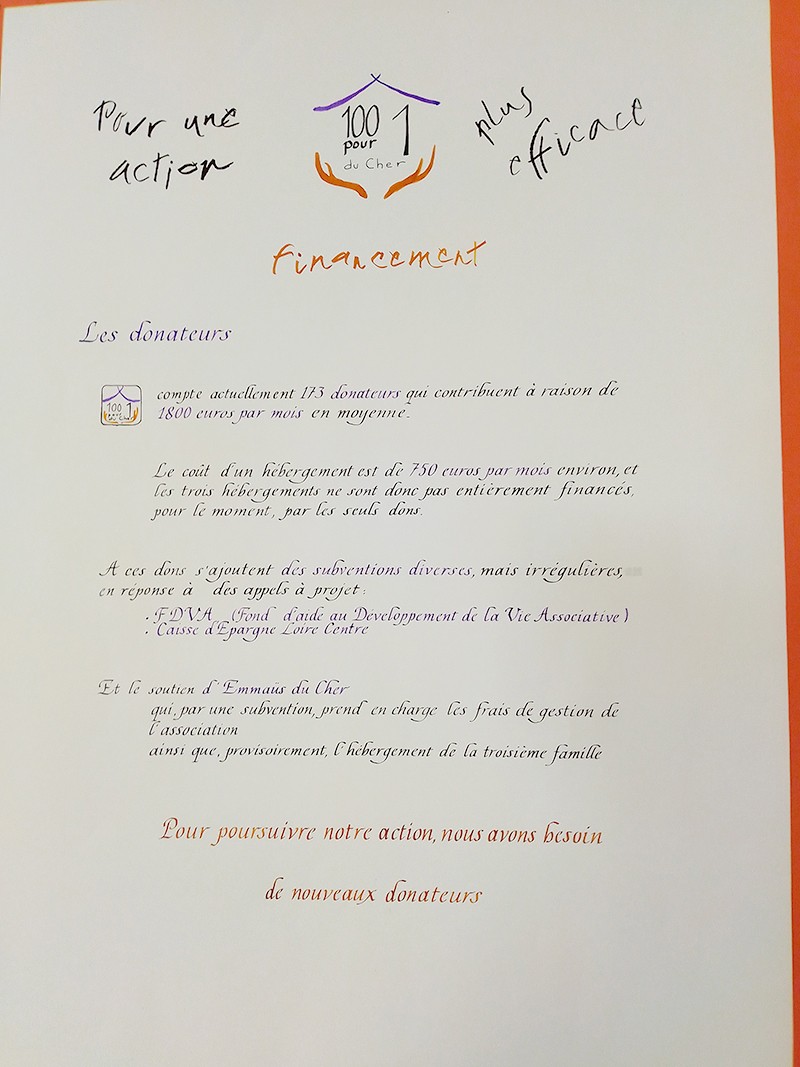 Pour une
action
100 1
pour
du Cher
plus
efficace
financement
Les donateurs
100 1
pour
du Cher
compte actuellement 173 donateurs qui contribuent à raison de
1800 euros par mois en moyenne.
Le coût d'un hébergement est de 750 euros par mois environ, et
les trois hébergements ne sont donc pas entièrement financés,
pour le moment, par les seuls dons.
A ces dons s'ajoutent des subventions diverses, mais irrégulières,
en réponse à des appels à projet :
. FDVA (Fond d'aide au Développement de la Vie Associative)
. Caisse d'Epargne Loire Centre
Et le soutien d'Emmaüs du Cher
qui, par une subvention, prend en charge les frais de gestion de
l'association
ainsi que, provisoirement, l'hébergement de la troisième famille
Pour poursuivre notre action, nous avons besoin
de nouveaux donateurs